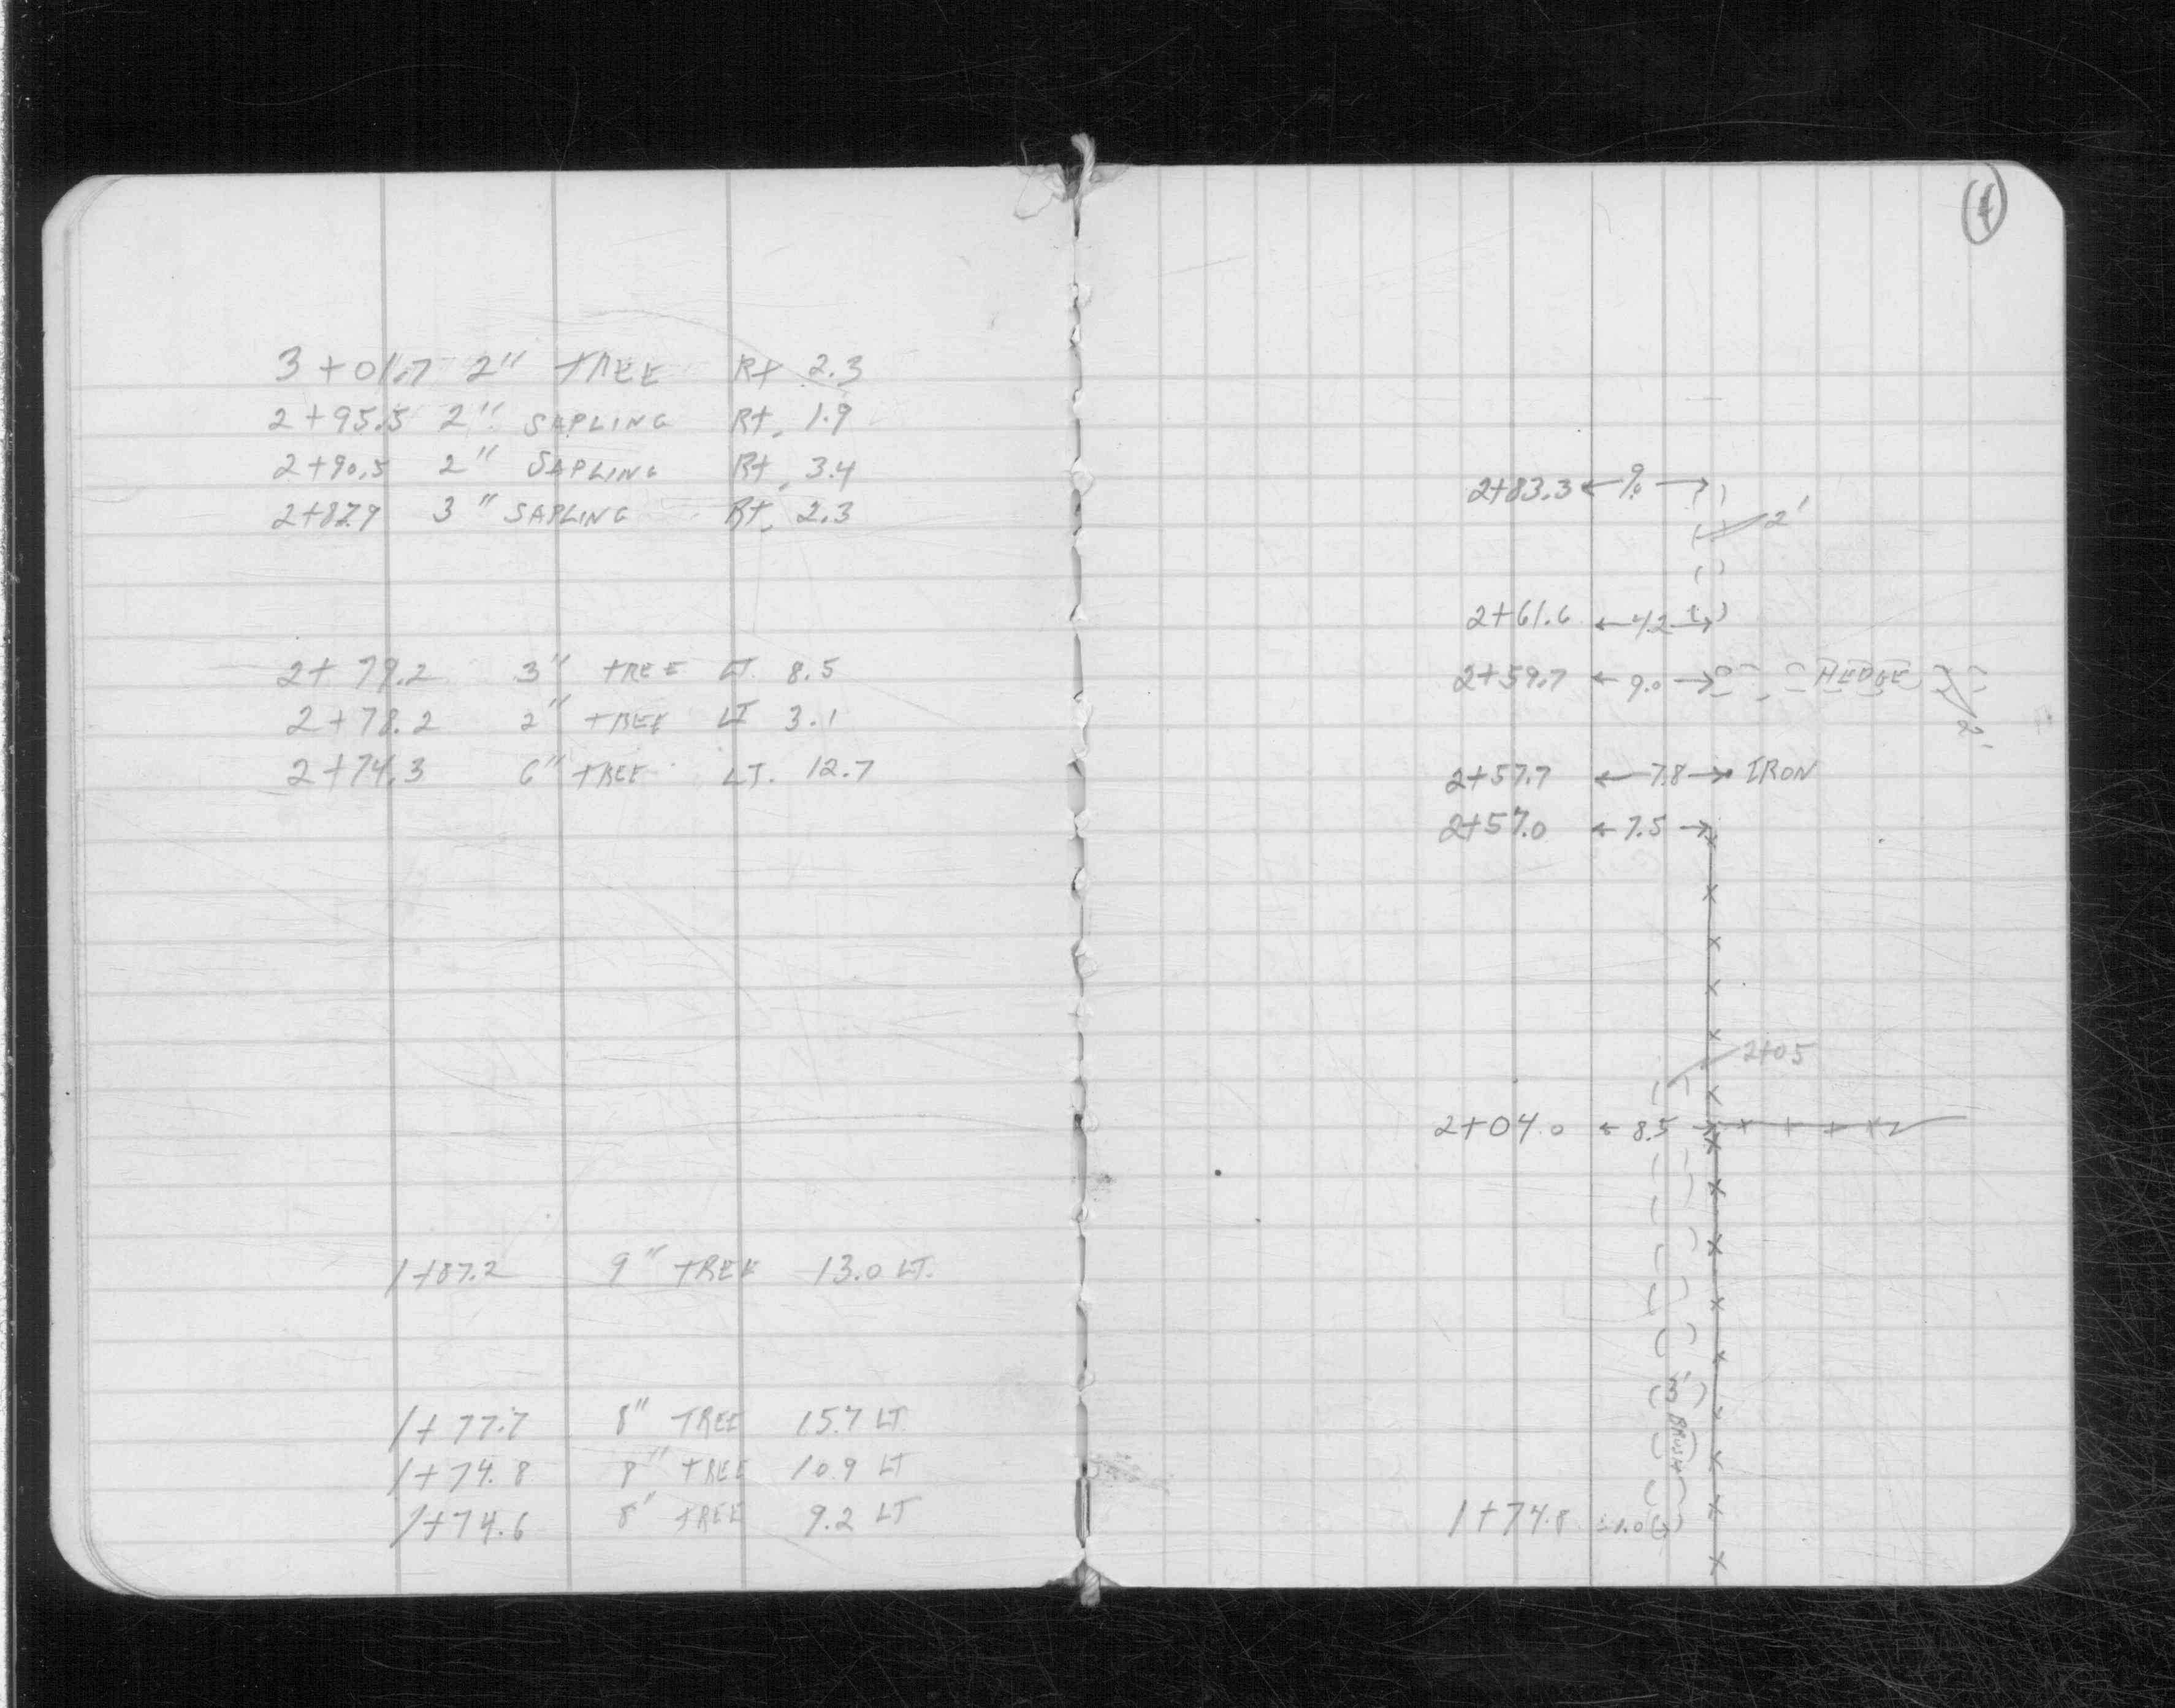 3+01.7 2" TREE Rt 2.3
2+95.5 2" SAPLING Rt. 1.9
2+90.5 2" SAPLING Rt. 3.4
2+87.9 3" SAPLING Rt. 2.3
2+79.2 3" TREE LT. 8.5
2+78.2 2" TREE LT 3.1
2+74.3 6" TREE LT. 12.7
1+87.2 9" TREE 13.0 LT.
1+77.7 8" TREE 15.7 LT
1+74.8 8" TREE 10.9 LT
1+74.6 8" TREE 9.2 LT
2+83.3
2'
2+61.6
2+59.7 9.0 HEDGE
2+57.7 7.8 IRON
2+57.0 7.5
2+05
2+04.0 8.5
3' BRUSH
1+74.8